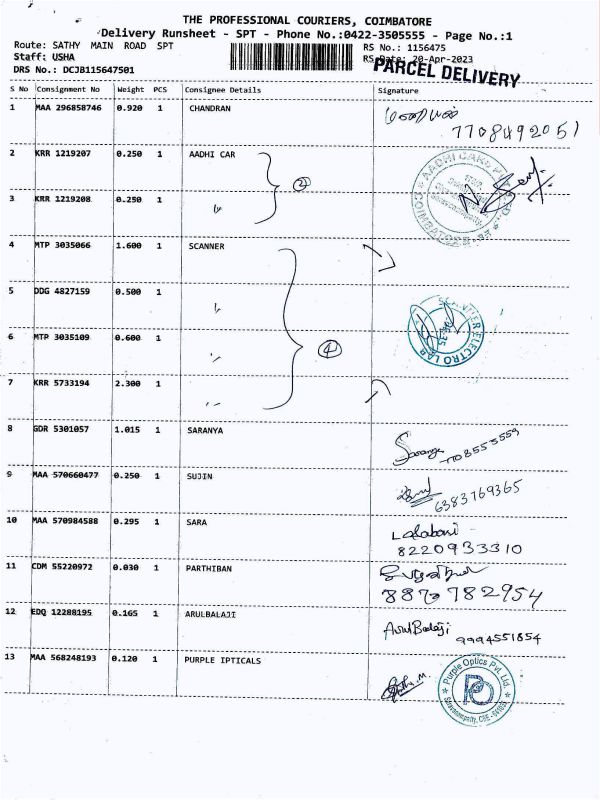 THE PROFESSIONAL COURIERS, COIMBATORE
Delivery Runsheet - SPT - Phone No.:0422-3505555 - Page No.:1
Route: SATHY MAIN ROAD SPT
RS No.: 1156475
Staff: USHA
RS Date: 20-Apr-2023
DRS No.: DCJB115647501
PARCEL DELIVERY
S No Consignment No Weight PCS Consignee Details Signature
1 MAA 296858746 0.920 1 CHANDRAN
7708492051
2 KRR 1219207 0.250 1 AADHI CAR
2
3 KRR 1219208 0.250 1 "
4 MTP 3035066 1.600 1 SCANNER
5 DDG 4827159 0.500 1 "
6 MTP 3035109 0.600 1 "
4
7 KRR 5733194 2.300 1 "
8 GDR 5301057 1.015 1 SARANYA
Saranya
9 MAA 570660477 0.250 1 SUJIN
6383769365
10 MAA 570984588 0.295 1 SARA
8220933310
11 CDM 55220972 0.030 1 PARTHIBAN
8870782954
12 EDQ 12288195 0.165 1 ARULBALAJI
Arul Balaji 9994551854
13 MAA 568248193 0.120 1 PURPLE IPTICALS
Purple Optics Pvt. Ltd.